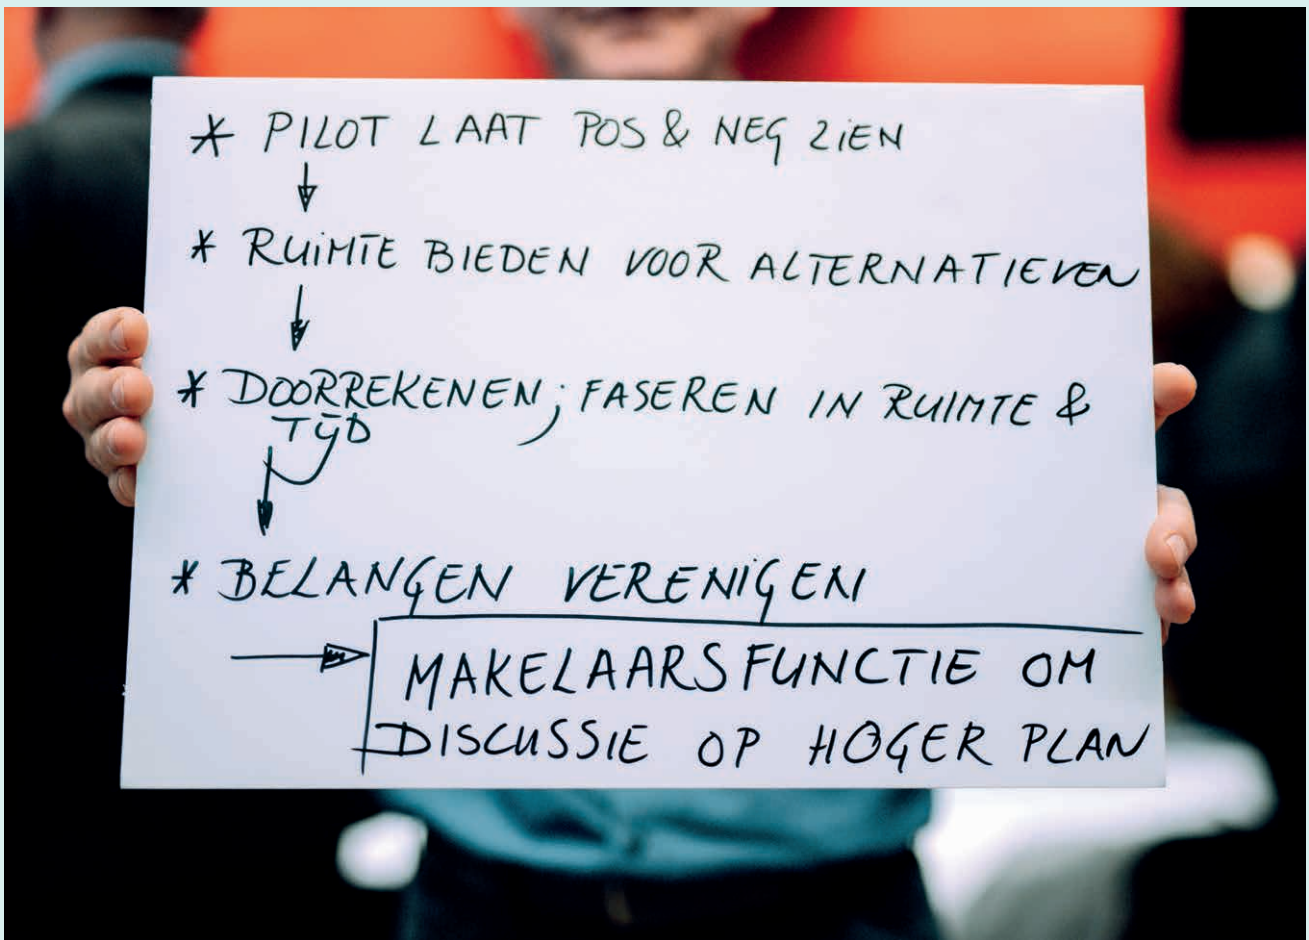 * PILOT LAAT POS & NEG ZIEN
* RUIMTE BIEDEN VOOR ALTERNATIEVEN
* DOORREKENEN; FASEREN IN RUIMTE &
TIJD
* BELANGEN VERENIGEN
MAKELAARSFUNCTIE OM
DISCUSSIE OP HOGER PLAN